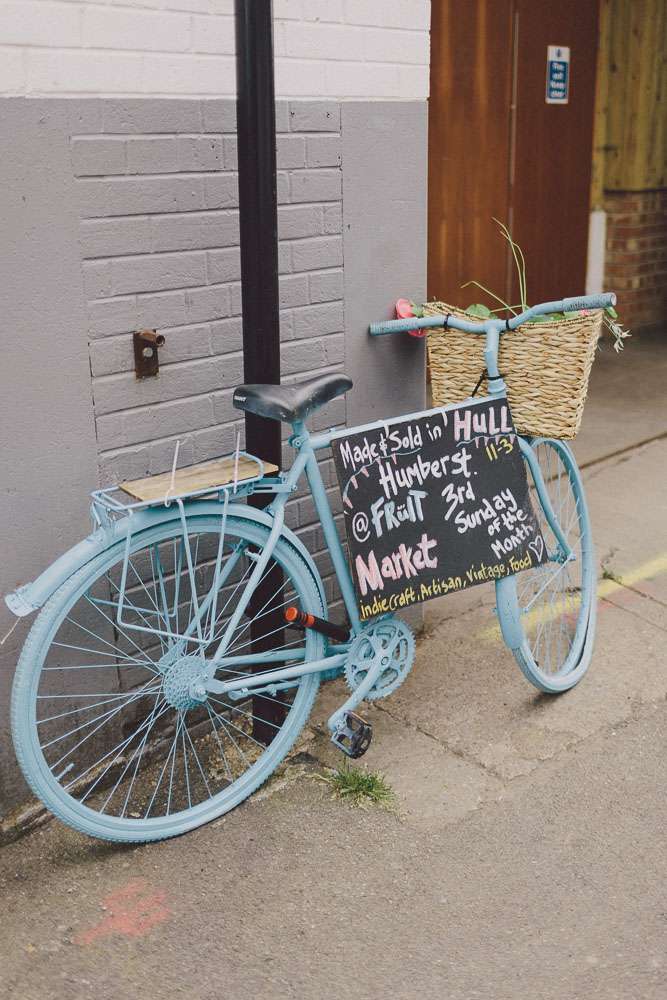 Made & Sold in HULL
Humber St. 11-3
@ FRüIT
Market
3rd
Sunday
of the
Month
Indie craft, Artisan, Vintage, food